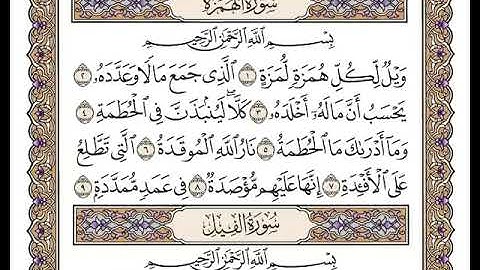 سُورَةُ الهُمَزَةِ
بِسْمِ ٱللَّهِ ٱلرَّحْمَٰنِ ٱلرَّحِيمِ
وَيْلٌ لِّكُلِّ هُمَزَةٍ لُّمَزَةٍ ١ ٱلَّذِى جَمَعَ مَالًا وَعَدَّدَهُۥ ٢
يَحْسَبُ أَنَّ مَالَهُۥٓ أَخْلَدَهُۥ ٣ كَلَّا ۖ لَيُنۢبَذَنَّ فِى ٱلْحُطَمَةِ ٤
وَمَآ أَدْرَىٰكَ مَا ٱلْحُطَمَةُ ٥ نَارُ ٱللَّهِ ٱلْمُوقَدَةُ ٦ ٱلَّتِى تَطَّلِعُ
عَلَى ٱلْأَفْـِٔدَةِ ٧ إِنَّهَا عَلَيْهِم مُّؤْصَدَةٌ ٨ فِى عَمَدٍ مُّمَدَّدَةٍۭ ٩
سُورَةُ الفِيلِ
بِسْمِ ٱللَّهِ ٱلرَّحْمَٰنِ ٱلرَّحِيمِ